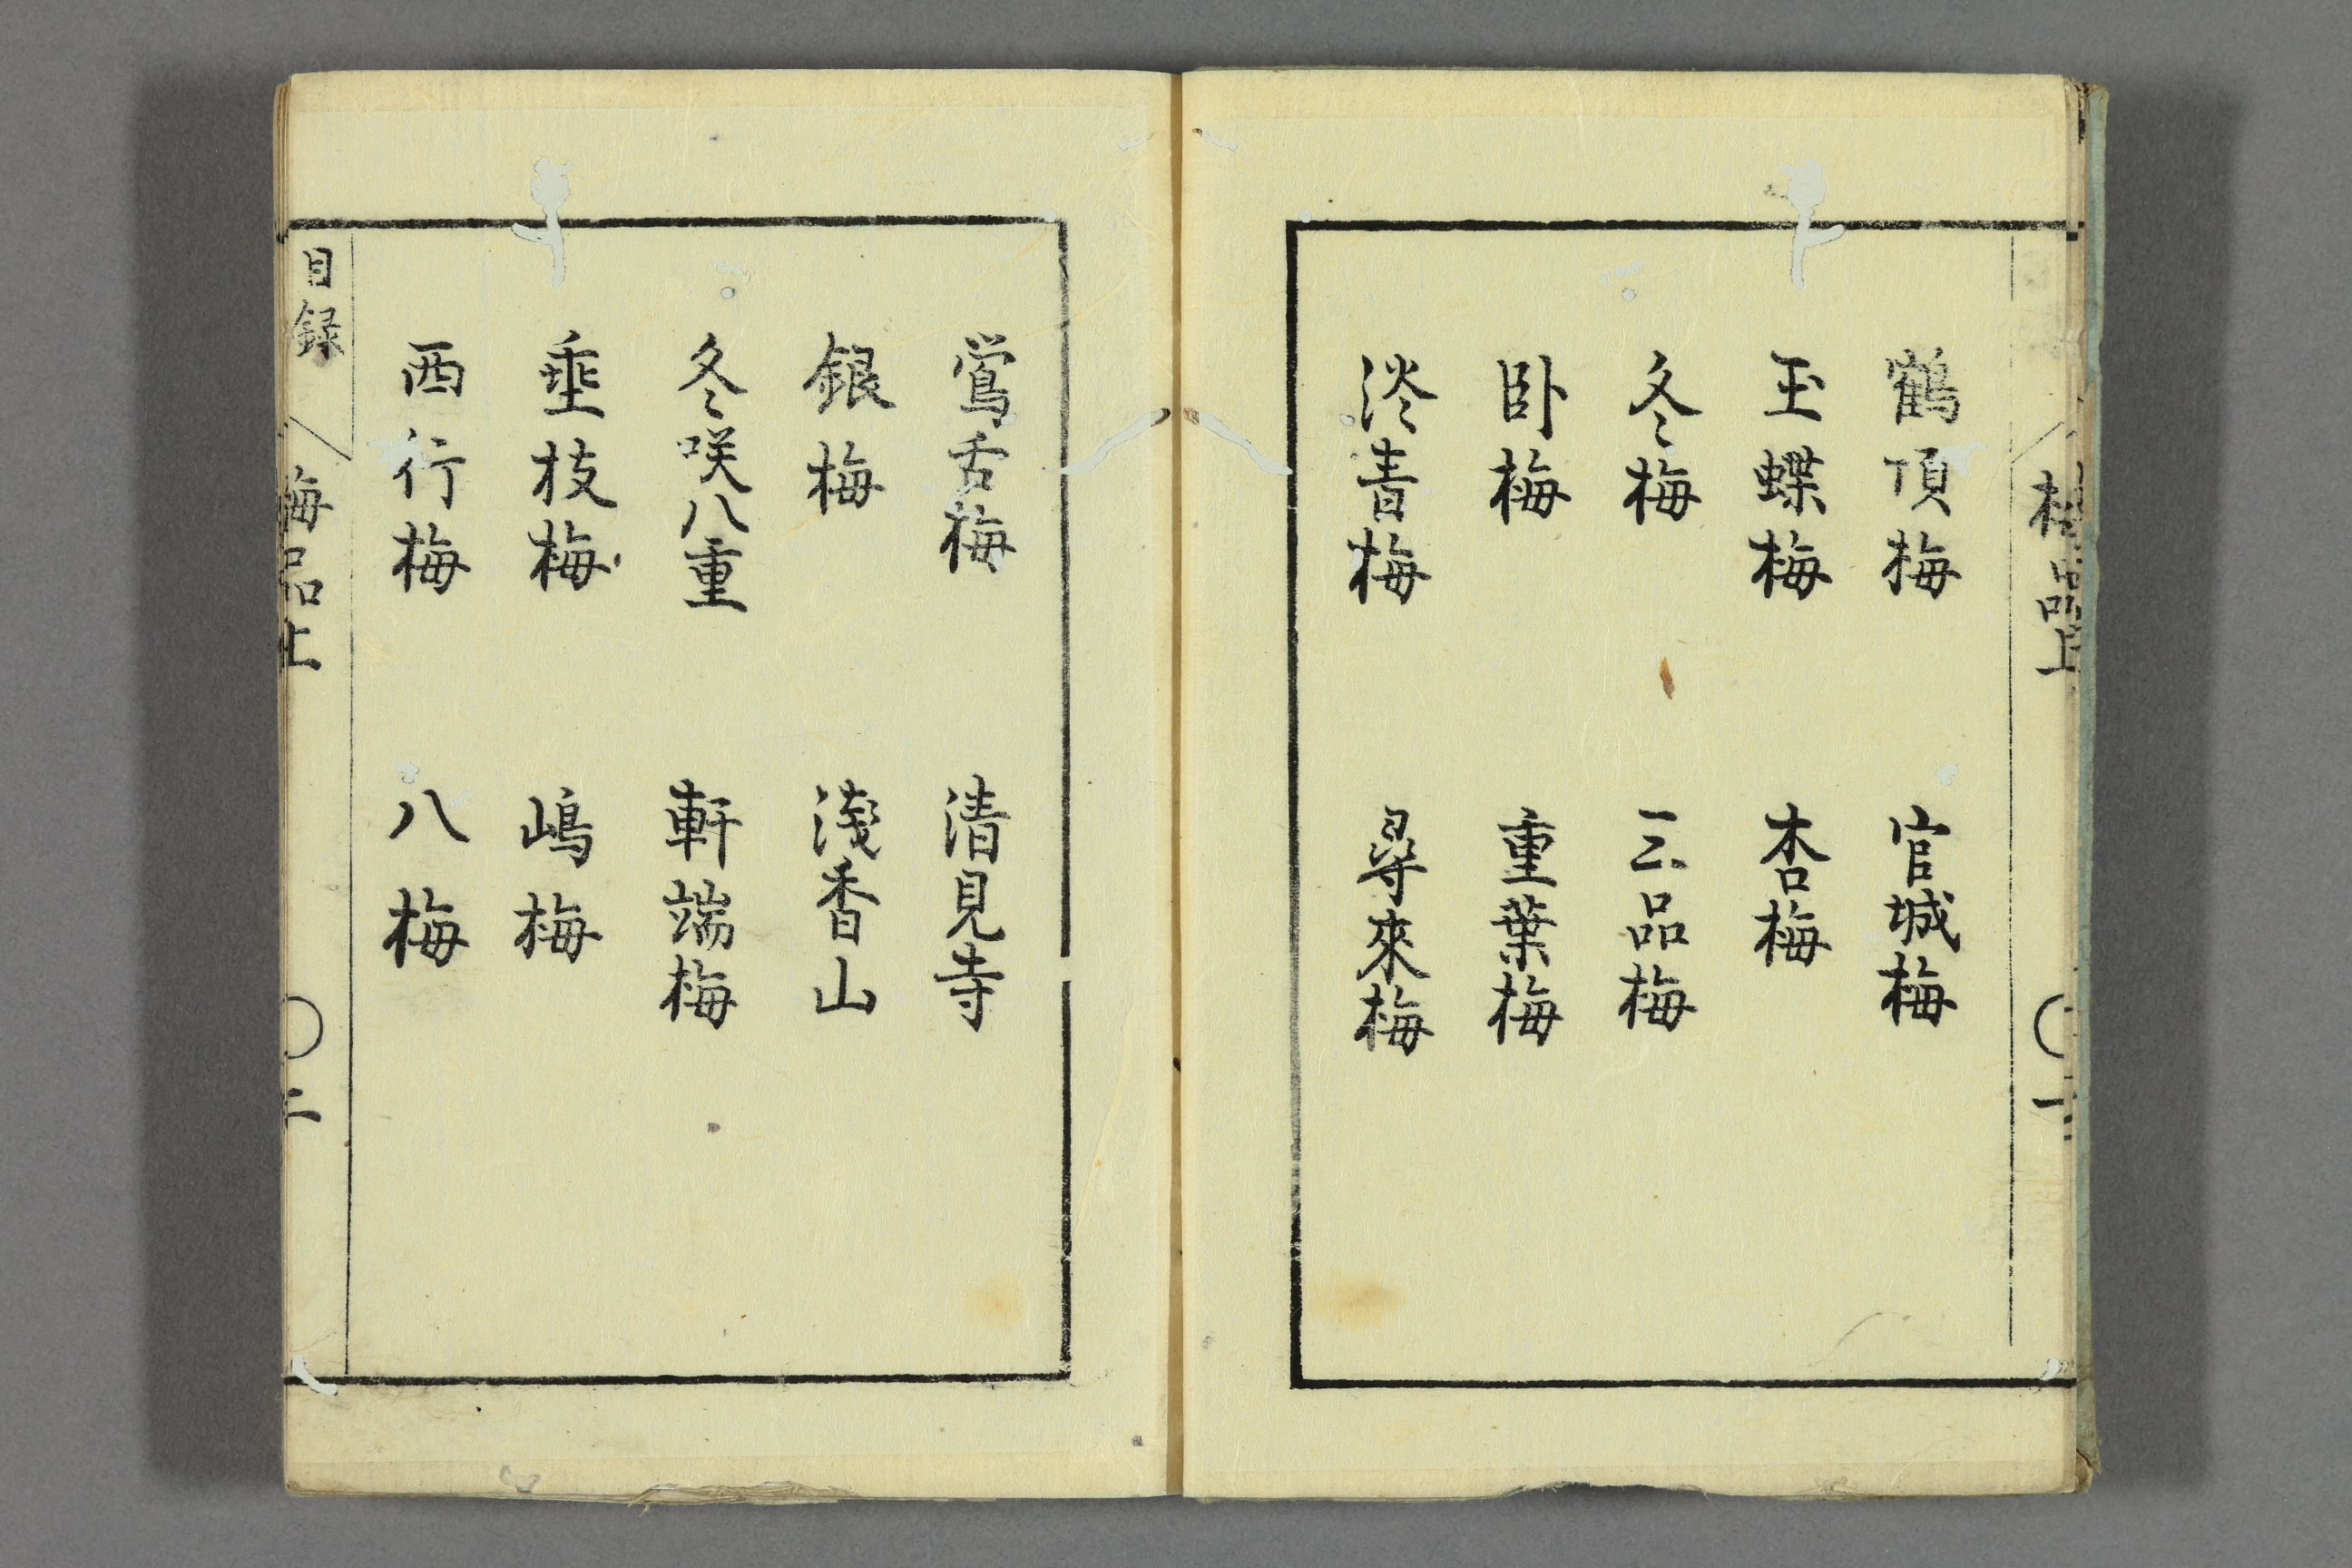 梅品上
鶴頂梅　官城梅
玉蝶梅　杏梅
冬梅　三品梅
臥梅　重葉梅
淡青梅　尋來梅
鶯舌梅　清見寺
銀梅　淺香山
冬咲八重　軒端梅
垂枝梅　嶋梅
西行梅　八梅
目録　梅品上　〇二